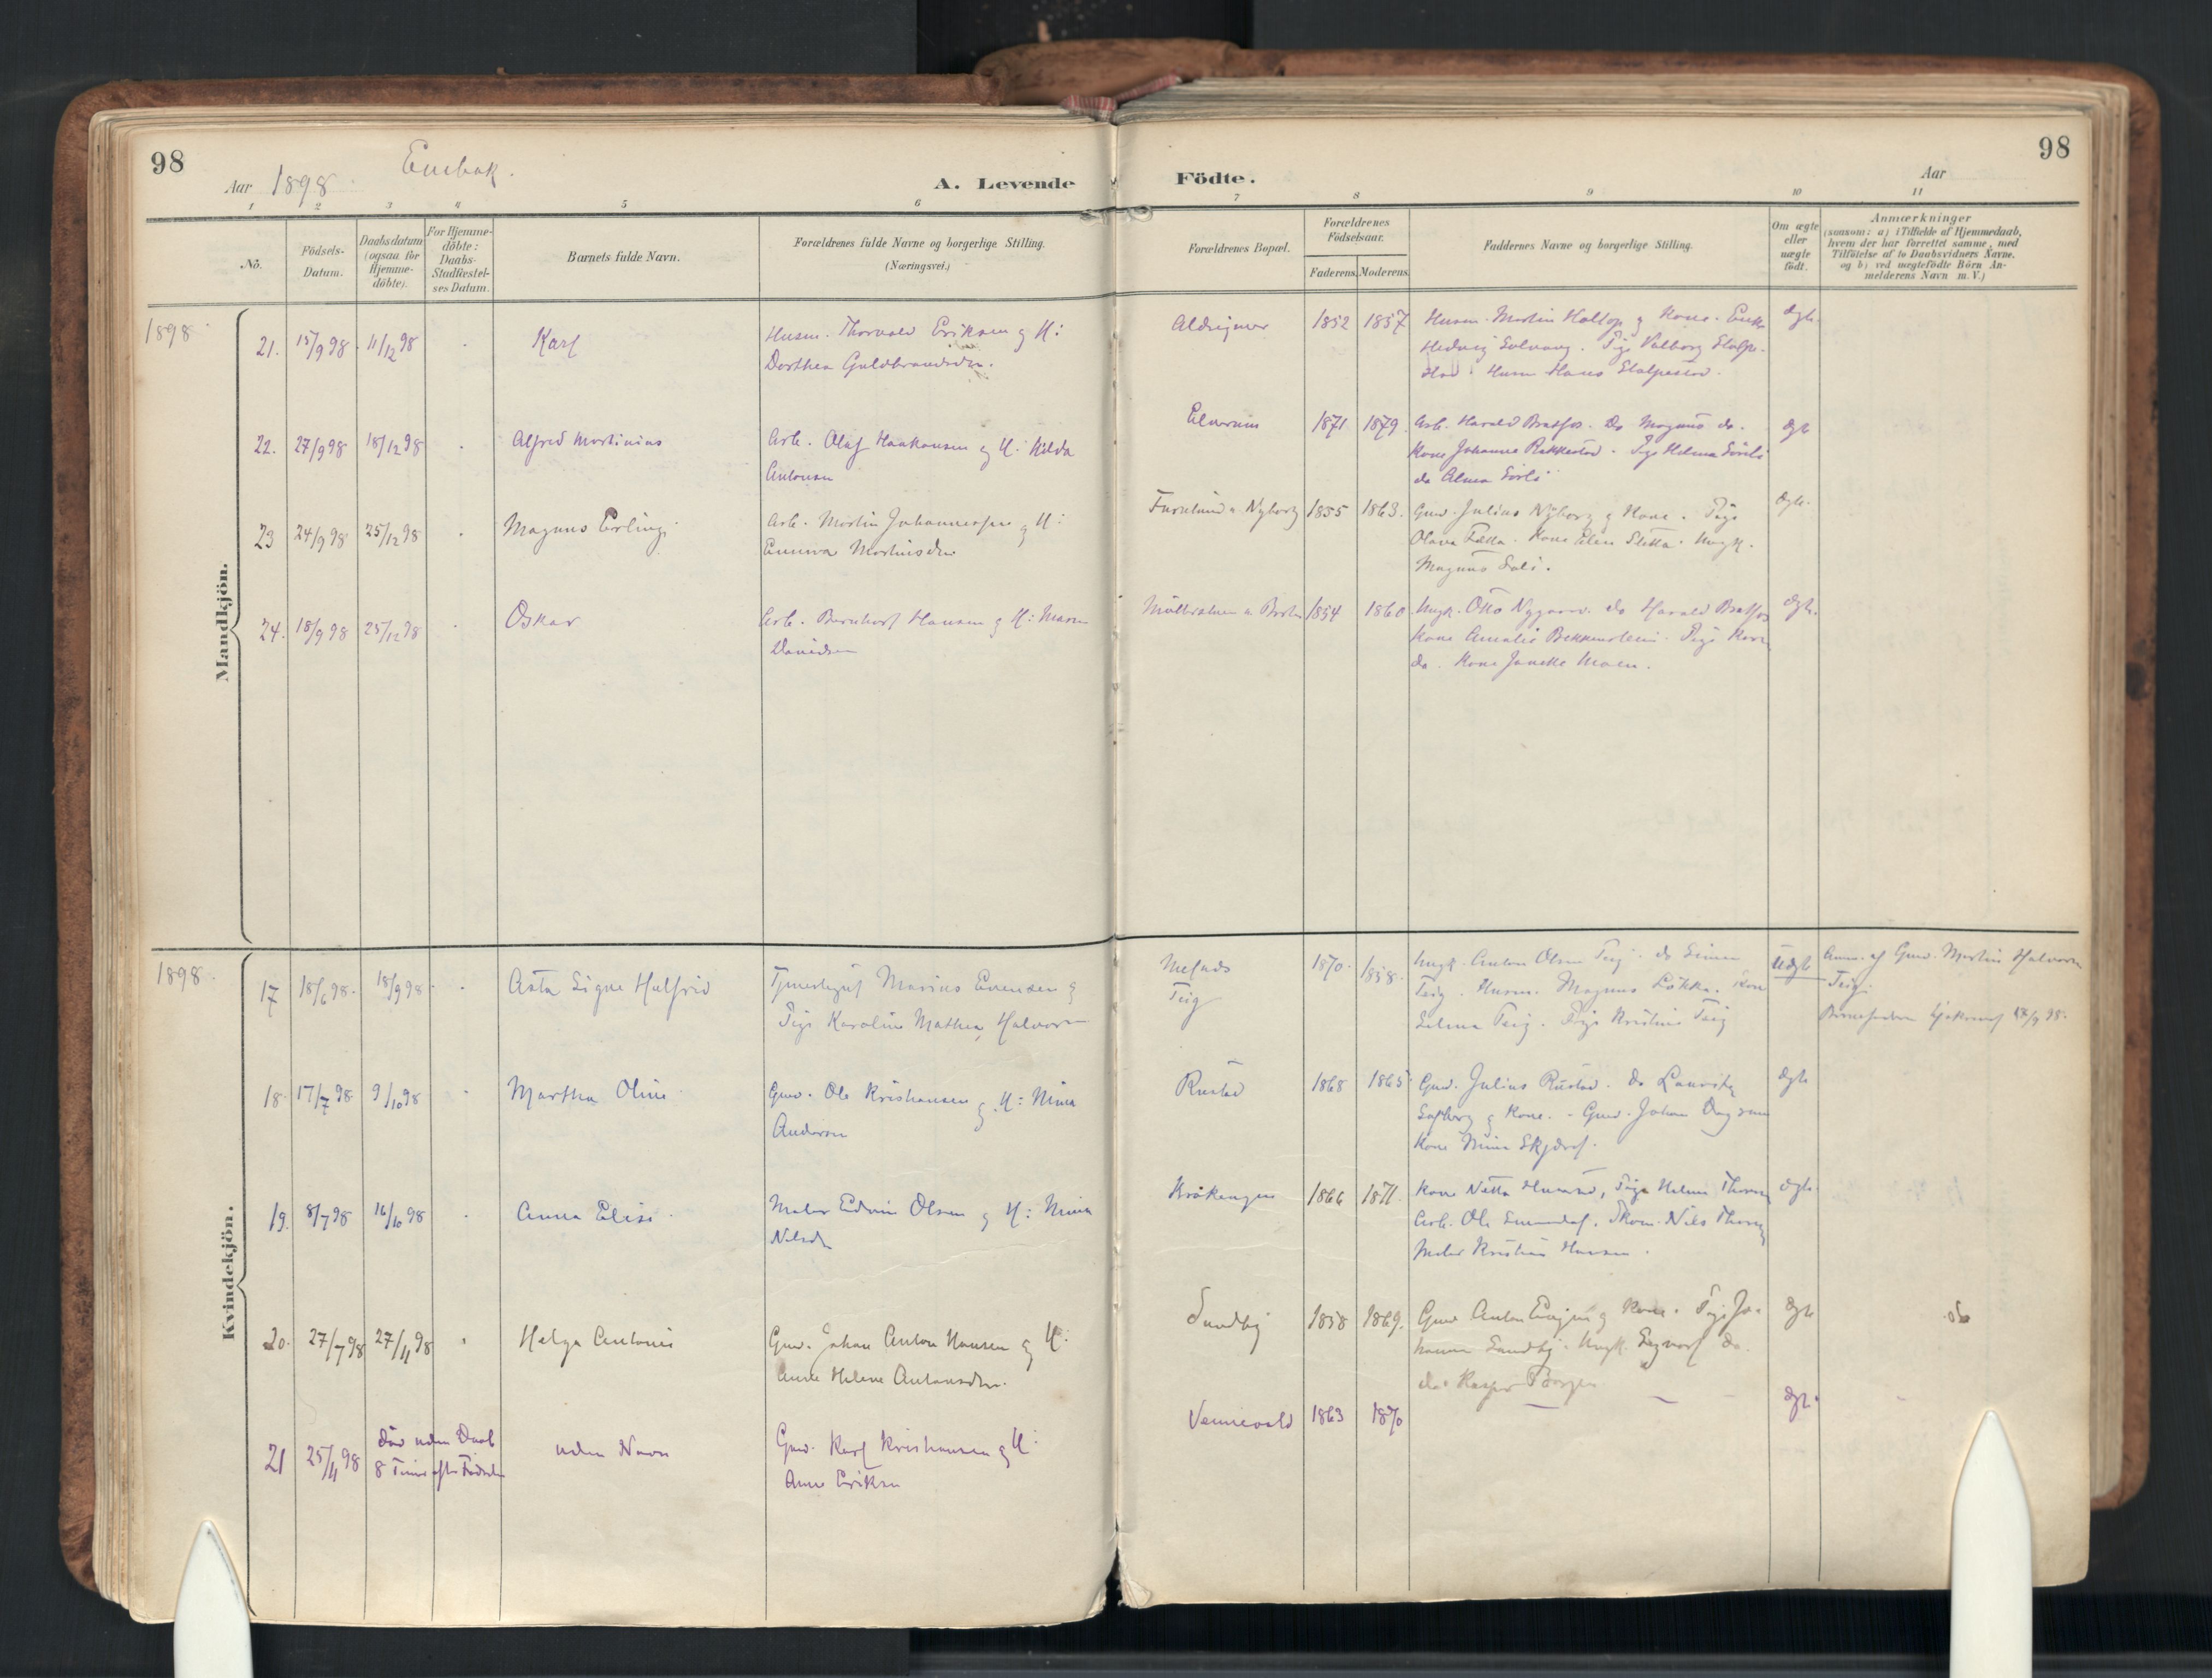 98
Aar 1898
A. Levende
Födte.
Aar
98
1 2 3 4 5 6 7 8 9 10 11
No.
Födsels-
Datum.
Daabsdatum
(ogsaa for
Hjemme-
döbte).
For Hjemme-
döbte:
Daabs-
Stadfæstel-
ses Datum.
Barnets fulde Navn.
Forældrenes fulde Navne og borgerlige Stilling.
(Næringsvei.)
Forældrenes Bopæl.
Forældrenes
Födselsaar.
Faderens. Moderens.
Faddernes Navne og borgerlige Stilling.
Om ægte
eller
uægte
födt.
Anmærkninger
(saasom: a) i Tilfælde af Hjemmedaab,
hvem der har forrettet samme, med
Tilföielse af to Daabsvidners Navne.
og b) ved uægtefödte Börn An-
melderens Navn m. V.)
Mandkjön.
1898
21. 15/9 98 11/12 98 Karl
Husm. Thorvald Eriksen og H:
Dorthea Guldbrandsdtr.
1852 1857
Husm. Martin Holtop og Kone. Enke
Hedvig Solvang. Pige Valborg
Husm Hans
Ægte
22. 27/9 98 18/12 98 Alfred Martinius
Arb. Olaf Haakonsen og H. Hilda
Antonsen
Elverum 1871 1879
Arb. Harald Bratfos. Do Magnus do.
Kone Johanne Rokkestad. Pige Helma Sörli
do Alma Sörli
Ægte
23 24/9 98 25/12 98 Magnus Erling
Arb. Martin Johannessen og H:
Emma Martinsdtr
Furulund u. Nyborg 1855 1863.
Gmd. Julius Nyborg og Kone. Pige
Olava Kone Elen Sletta. Ungk.
Magnus Dali.
Ægte
24. 18/9 98 25/12 98 Oskar
Arb. Bernhard Hansen og H: Maren
Davidsen
1854 1860
Ungk. Otto Nygaard. do Harald Bratfos
Kone Amalie Pige Karen
do. Kone Janette Moen.
Ægte
Kvindekjön.
1898
17 18/6 98. 18/9 98 Asta Signe Halfrid
Marius Evensen og
Pige Karoline Mathea Halvorsn
Mefads
Teig
1870. 1858.
Ungk. Anton Olsen Teig. do Simen
Teig. Husm. Magnus Lökka. Kone
Selma Teig. Pige Kristine Teig
Uægte
Anm. af Gmd. Martin Halvorsn
Teig.
Barnefaderen 17/9 98.
18. 17/7 98 9/10 98 Martha Oline
Gmd. Ole Kristiansen og H: Mina
Andersen
Rustad 1868 1865
Gmd. Julius Rustad. do Lauritz
og Kone. Gmd. Johan
Kone Mina
Ægte
19. 8/7 98 16/10 98 Anna Elise
Maler Edvin Olsen og H: Mina
Nilsdtr
Kråkengen 1866 1871
Kone Netta Pige Helma
Arb. Ole Skom. Nils
Maler Kristian Hansen.
Ægte
20. 27/7 98 27/11 98 Helga Antonie
Gmd. Johan Anton Hansen og H:
Anne Helene Antonsdtr.
Sundby 1858 1869.
Gmd Anton og Kone. Pige Jo-
hanne Sundby. Ungk. Sigvart do.
do. Kasper
Ægte
21 25/11 98
död uden Daab
8 Timer efter Födselen
uden Navn
Gmd. Karl Kristiansen og H:
Anne Eriksen
Vennevold 1863 1870
Ægte